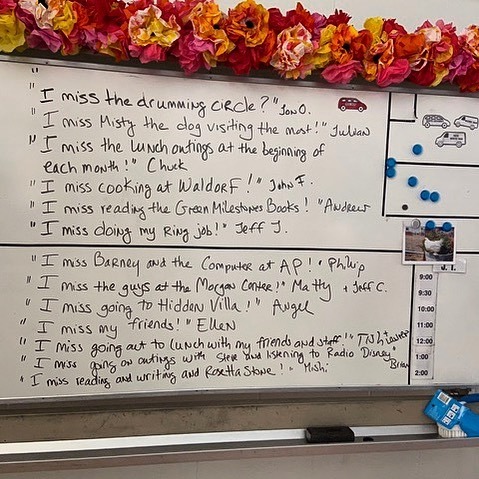 "
I miss the drumming circle?" Jon O.
"I miss Misty the dog visiting the most!" Julian
"I miss the lunch outings at the beginning of
each month!" Chuck
"I miss cooking at Waldorf!" John F.
"I miss reading the Green Milestones Books! "Andrew
"I miss doing my Ring job!" Jeff J.
"I miss Barney and the Computer at AP!" Philip
"I miss the guys at the Morgan Center!" Matty + Jeff C.
"I miss going to Hidden Villa!" Angel
"I miss my friends!" Ellen
"I miss going out to lunch with my friends and staff!"
"I miss going on outings with Steve and listening to Radio Disney" Brian
"I miss reading and writing and Rosetta Stone!" Mishi
J. T.
9:00
9:30
10:00
11:00
12:00
1:00
2:00